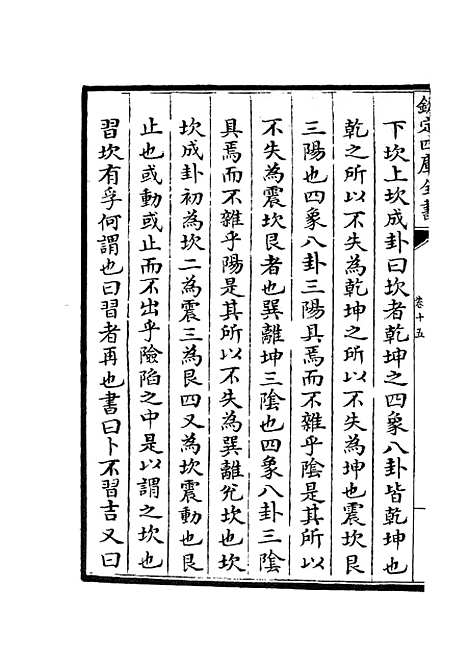 欽定四庫全書
卷十五
下坎上坎成卦曰坎者乾坤之四象八卦皆乾坤也
乾之所以不失為乾坤之所以不失為坤也震坎艮
三陽也四象八卦三陽具焉而不雜乎陰是其所以
不失為震坎艮者也巽離坤三陰也四象八卦三陰
具焉而不雜乎陽是其所以不失為巽離兊坎也坎
坎成卦初為坎二為震三為艮四又為坎震動也艮
止也或動或止而不出乎險陷之中是以謂之坎也
習坎有孚何謂也曰習者再也書曰卜不習吉又曰